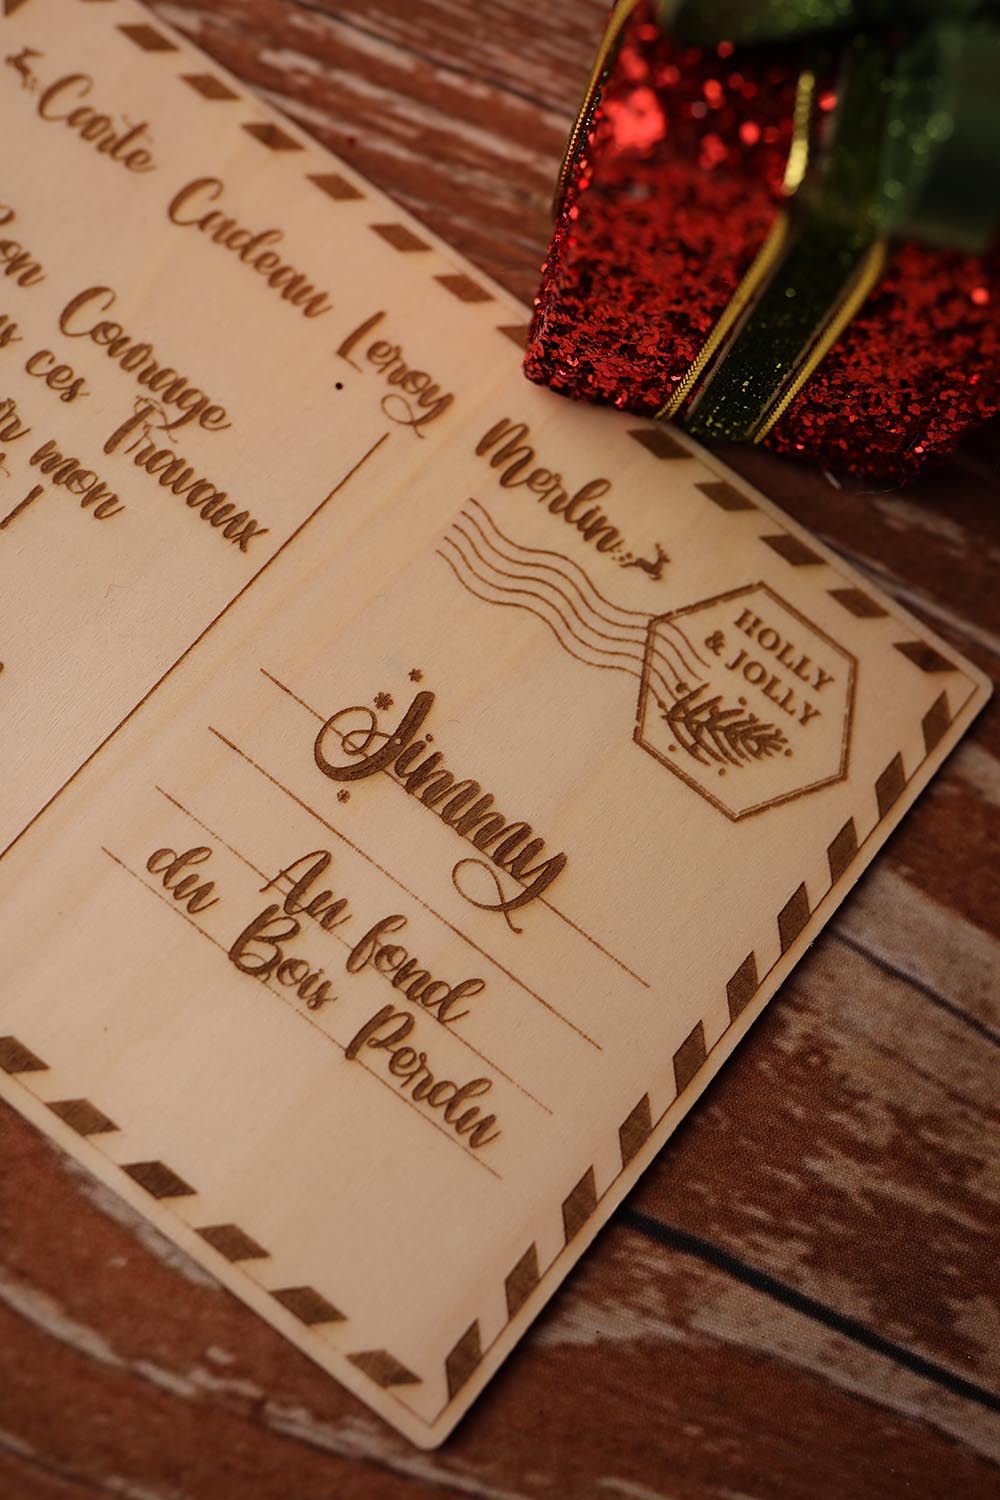 Carte Cadeau Leroy Merlin
Courage
ces Travaux
mon
!
HOLLY
& JOLLY
Jimmy
Au fond
du Bois Perdu